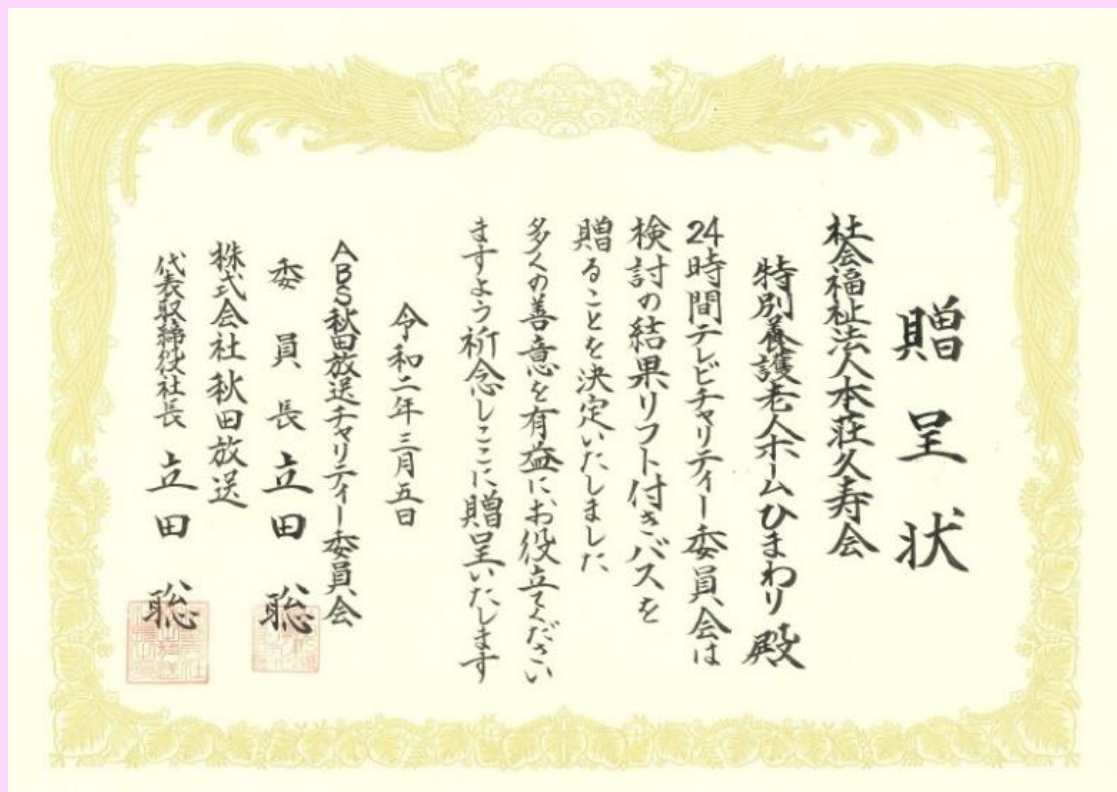 贈呈状
社会福祉法人本荘久寿会
特別養護老人ホームひまわり 殿
24時間テレビチャリティー委員会は
検討の結果リフト付きバスを
贈ることを決定いたしました
多くの善意を有益にお役立てください
ますよう祈念しここに贈呈いたします
令和二年三月五日
ABS秋田放送チャリティー委員会
委員長 立田 聡
株式会社秋田放送
代表取締役社長 立田 聡